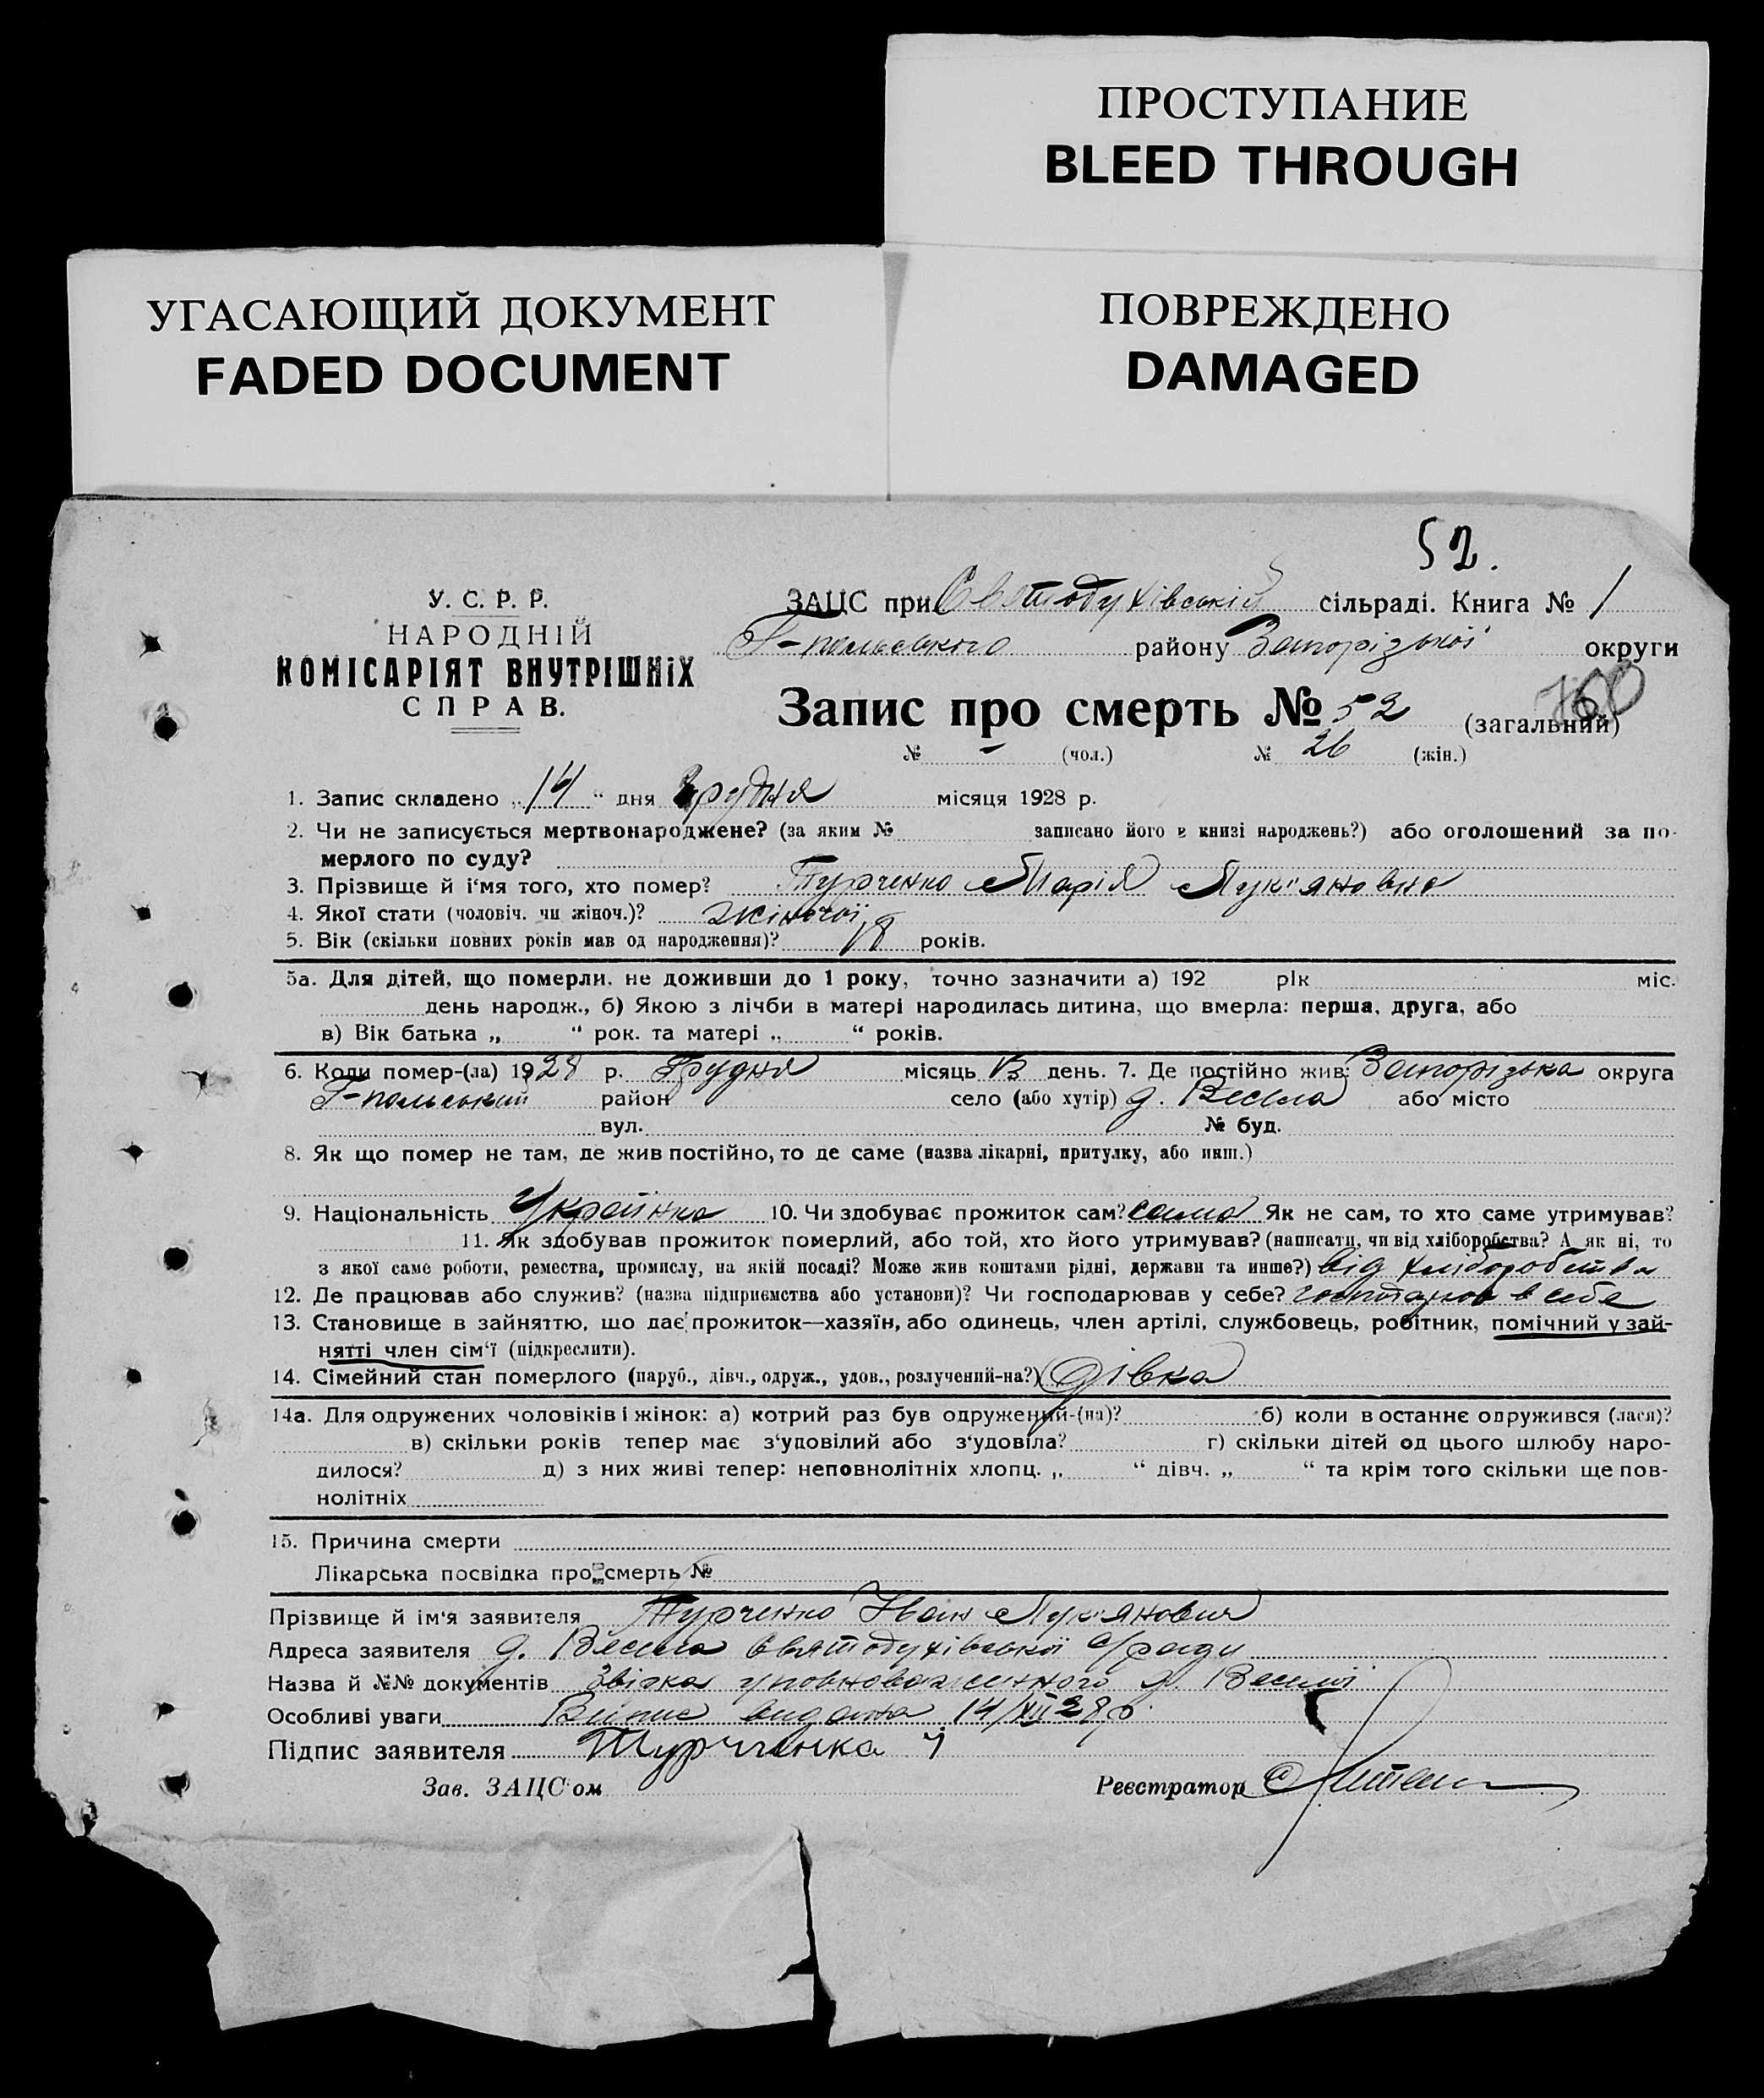 ПРОСТУПАНИЕ
BLEED THROUGH
УГАСАЮЩИЙ ДОКУМЕНТ
FADED DOCUMENT
ПОВРЕЖДЕНО
DAMAGED
52.
У. С. Р. Р.
НАРОДНІЙ
КОМІСАРІЯТ ВНУТРІШНІХ
СПРАВ.
ЗАЦС при Святодухівській сільраді. Книга № 1
Г-польського району Запорізької округи
Запис про смерть № 52 (загальний)
№ - (чол.) № 26 (жін.)
1. Запис складено „14“ дня грудня місяця 1928 р.
2. Чи не записується мертвонароджене? (за яким № записано його в книзі народжень?) або оголошений за по-
мерлого по суду?
3. Прізвище й і'мя того, хто помер? Турченко Марія Лук"яновна
4. Якої стати (чоловіч. чи жіноч.)? жіночої
5. Вік (скільки повних років мав од народження)? 18 років.
5а. Для дітей, що померли, не доживши до 1 року, точно зазначити а) 192 рік міс.
день народж., б) Якою з лічби в матері народилась дитина, що вмерла: перша, друга, або
в) Вік батька „ “ рок. та матері „ “ років.
6. Коли помер-(ла) 1928 р. Грудня місяць 13 день. 7. Де постійно жив: Запорізька округа
Г-польський район село (або хутір) д. Весела або місто
вул. № буд.
8. Як що помер не там, де жив постійно, то де саме (назва лікарні, притулку, або инш.)
9. Національність Українка 10. Чи здобуває прожиток сам? сама Як не сам, то хто саме утримував?
11. Як здобував прожиток померлий, або той, хто його утримував? (написати, чи від хліборобства? А як ні, то
з якої саме роботи, ремества, промислу, на якій посаді? Може жив коштами рідні, держави та инше?) від хліборобства
12. Де працював або служив? (назва підприємства або установи)? Чи господарював у себе? в себе
13. Становище в зайняттю, що дає прожиток—хазяїн, або одинець, член артілі, службовець, робітник, помічний у зай-
нятті член сім‘ї (підкреслити).
14. Сімейний стан померлого (паруб., дівч., одруж., удов., розлучений-на?) дівка
14а. Для одружених чоловіків і жінок: а) котрий раз був одружений-(на)? б) коли в останнє одружився (лася)?
в) скільки років тепер має з‘удовілий або з‘удовіла? г) скільки дітей од цього шлюбу наро-
дилося? д) з них живі тепер: неповнолітніх хлопц. „ “ дівч. „ “ та крім того скільки ще пов-
нолітніх
15. Причина смерти
Лікарська посвідка про смерть №
Прізвище й ім'я заявителя Турченко Іван Лук"янович
Адреса заявителя д. Весела Святодухівської с/ради
Назва й №№ документів Звістка уповноваженного д. Веселої
Особливі уваги Випис видана 14/XII 28 р.
Підпис заявителя Турченка І
Зав. ЗАЦС'ом Реєстратор